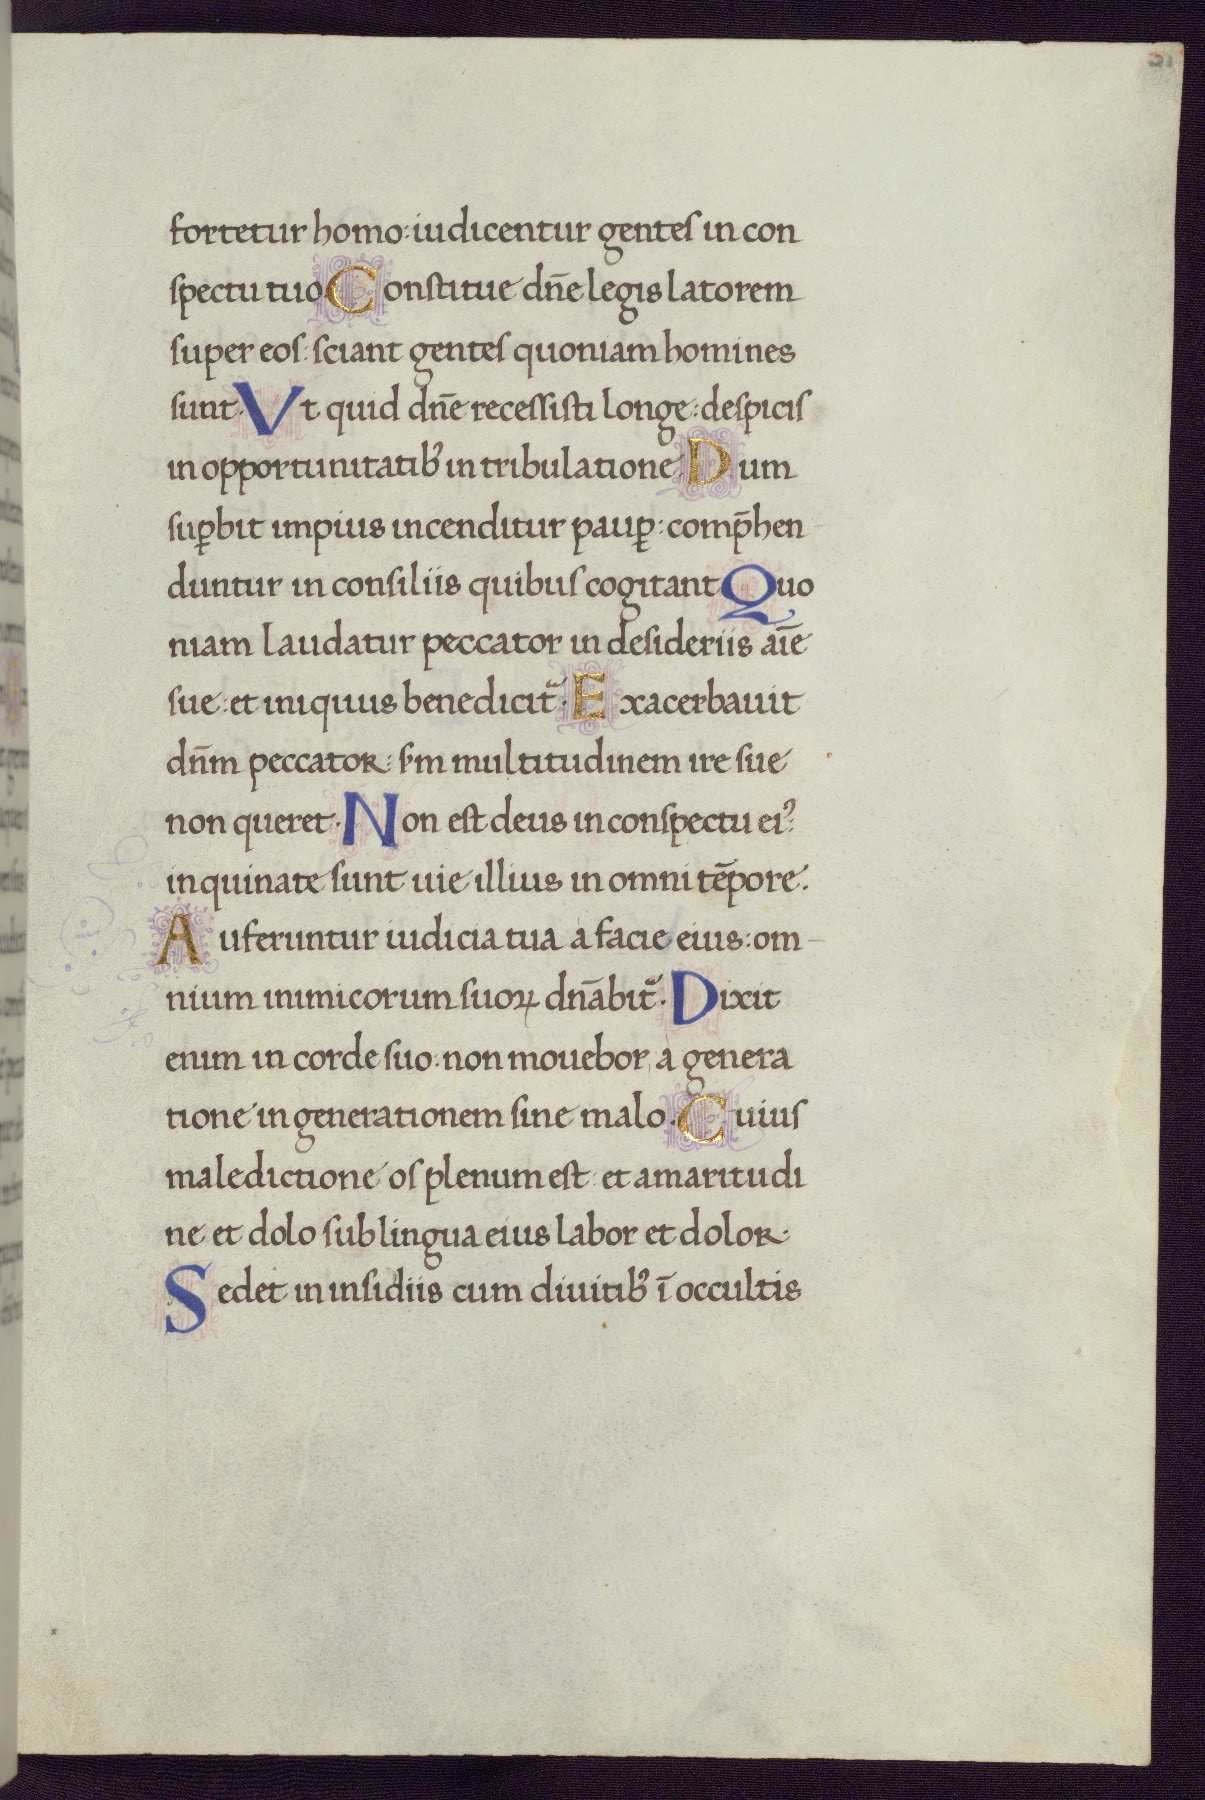 fortetur homo: iudicentur gentes in con
spectu tuo Constitue dn̄e legis latorem
super eos: sciant gentes quoniam homines
sunt. Vt quid dn̄e recessisti longe: despicis
in opportunitatibꝰ in tribulatione. Dum
suꝑbit impius incenditur pauꝑ: comp̄hen
duntur in consiliis quibus cogitant Quo
niam laudatur peccator in desideriis aīe
sue: et iniquus benedicit᷑. Exacerbauit
dn̄m peccator: sm̄ multitudinem ire sue
non queret. Non est deus in conspectu eiꝰ:
inquinate sunt uie illius in omni tēpore.
Auferuntur iudicia tua a facie eius: om-
nium inimicorum suoꝝ dn̄abit᷑. Dixit
enim in corde suo: non mouebor a genera
tione in generationem sine malo. Cuius
maledictione os plenum est: et amaritudi
ne et dolo sub lingua eius labor et dolor.
Sedet in insidiis cum diuitibꝰ ī occultis